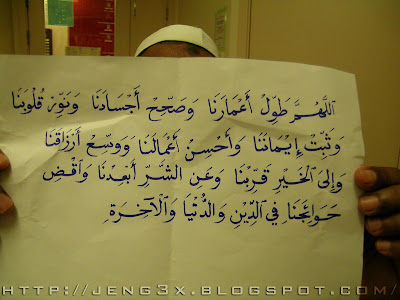 اَللّٰهُمَّ طَوِّلْ أَعْمَارَنَا وَصَحِّحْ أَجْسَادَنَا وَنَوِّرْ قُلُوبَنَا
وَثَبِّتْ إِيْمَانَنَا وَأَحْسِنْ أَعْمَالَنَا وَوَسِّعْ أَرْزَاقَنَا
وَإِلَى الْخَيْرِ قَرِّبْنَا وَعَنِ الشَّرِّ أَبْعِدْنَا وَاقْضِ
حَوَائِجَنَا فِي الدِّيْنِ وَالدُّنْيَا وَالْآخِرَةِ
HTTP://JENG3X.BLOGSPOT.COM/